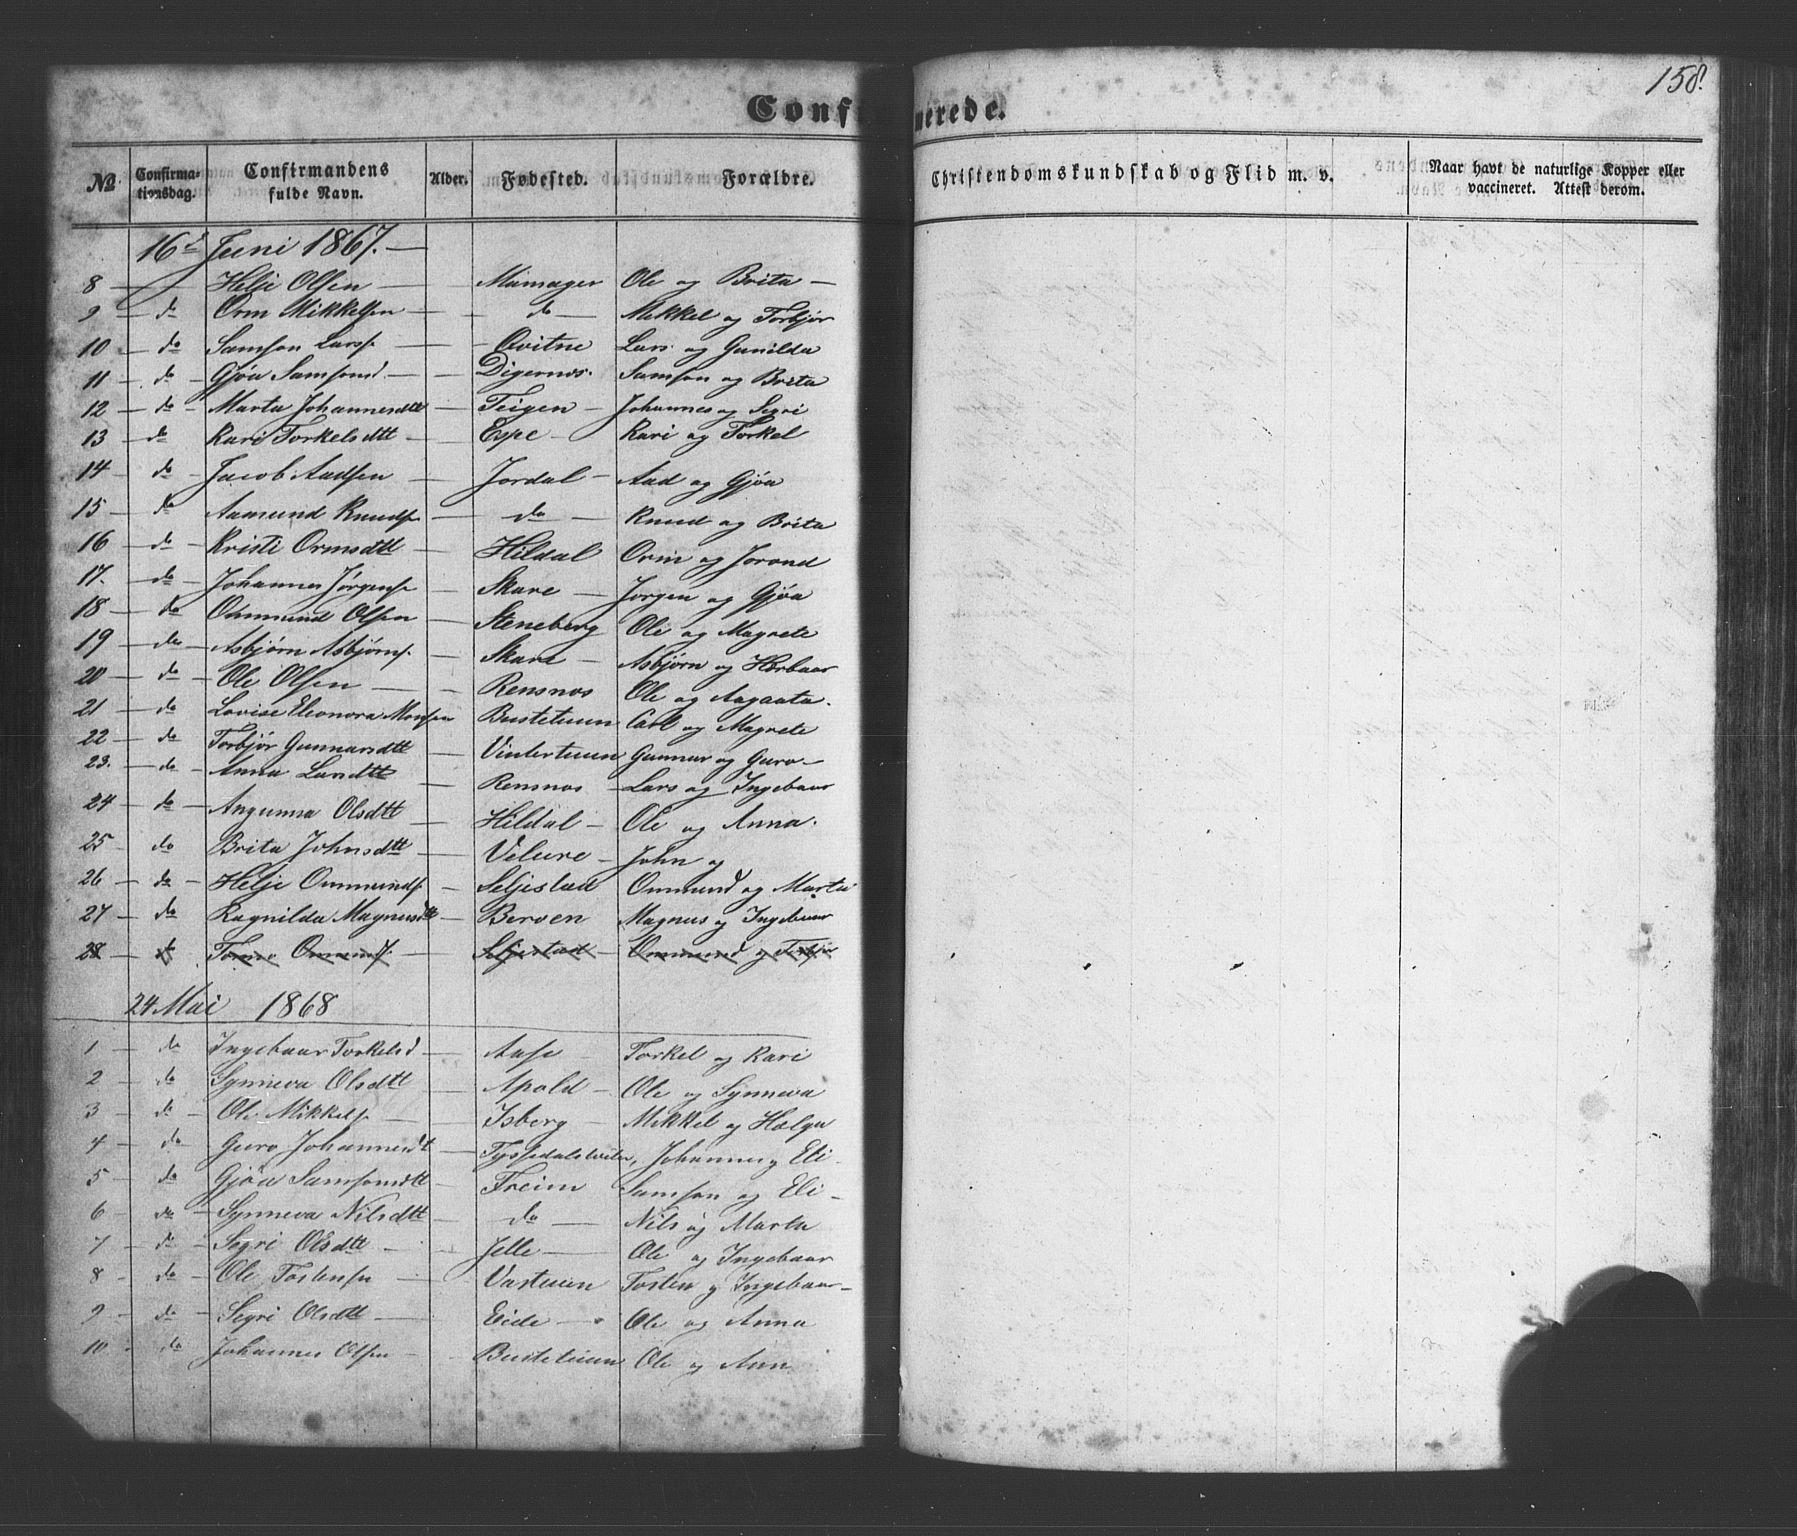 158.
Confirmerede.
No. Confirmationsdag. Confirmandens fulde Navn. Alder. Fødested. Forældre. Christendomskundskab og Flid m. v. Naar havt de naturlige Kopper eller vaccineret. Attest derom.
16d Juni 1867. —
8 — Helje Olsen — Mannager Ole og Brita —
9 — do — Orm Mikkelsen — do — Mikkel og Torbjør
10 — do Samson Larss. — Qvitne Lars og Gunilda
11 — do — Gjøa Samsond. — Digernes. Samson og Brita
12 — do — Marta Johannesdtt — Teigen — Johannes og Segri
13 — do Kari Torkelsdtt — Espe — Kari og Torkel
14 — do Jacob Aadsen — Jordal — Aad og Gjøa
15 — do — Aamund Knuds. — do — Knud og Brita
16 — do — Kristi Ormsdtt — Hildal Orm og Jorond
17. — do — Johannes Jørgens. — Skare — Jørgen og Gjøa
18 — do — Ommund Olsen — Steneberg Ole og Magrete
19 — do — Asbjørn Asbjørns. — Skare — Asbjørn og Herbaar
20 — do — Ole Olsen — Rensnos Ole og Aagaata.
21 — do — Lovise Eleonora Monsen Bustetuun Carl og Magrete
22 — do — Torbjør Gunnarsdtt — Vintertuun Gunnar og Guro —
23. — do — Anna Larsdtt — Rensnos — Lars og Ingebaar
24 — do — Angunna Olsdtt — Hildal — Ole og Anna.
25 — do Brita Johnsdtt — Velure — John og
26 — do — Helje Ommunds. — Seljestad Ommund og Marta
27 — do — Ragnilda Magnusdtt — Beroen Magnus og Ingebaar
28 — do Ommunds. Seljestad — Ommund og Torbjør
24 Mai 1868
1 — do Ingebaar Torkelsd — Aase — Torkel og Kari
2 — do Synneva Olsdtt — Apold — Ole og Synneva
3 — do — Ole Mikkels. — Isberg — Mikkel og Hælga
4 — do — Guro Johannesdt — Tyssedals Johannes og Eli —
5 — do Gjøa Samsonsdtt — Freim Samson og Eli —
6 — do — Synneva Nilsdtt — do — Nils og Marta
7 — do — Segri Olsdtt — Jelle — Ole og Ingebaar
8 — do — Ole Tostensen — Vastuun Tosten og Ingebaar —
9 — do — Segri Olsdtt — Eide — Ole og Anna
10 — do — Johannes Olsen — Bustetuun Ole og Ann